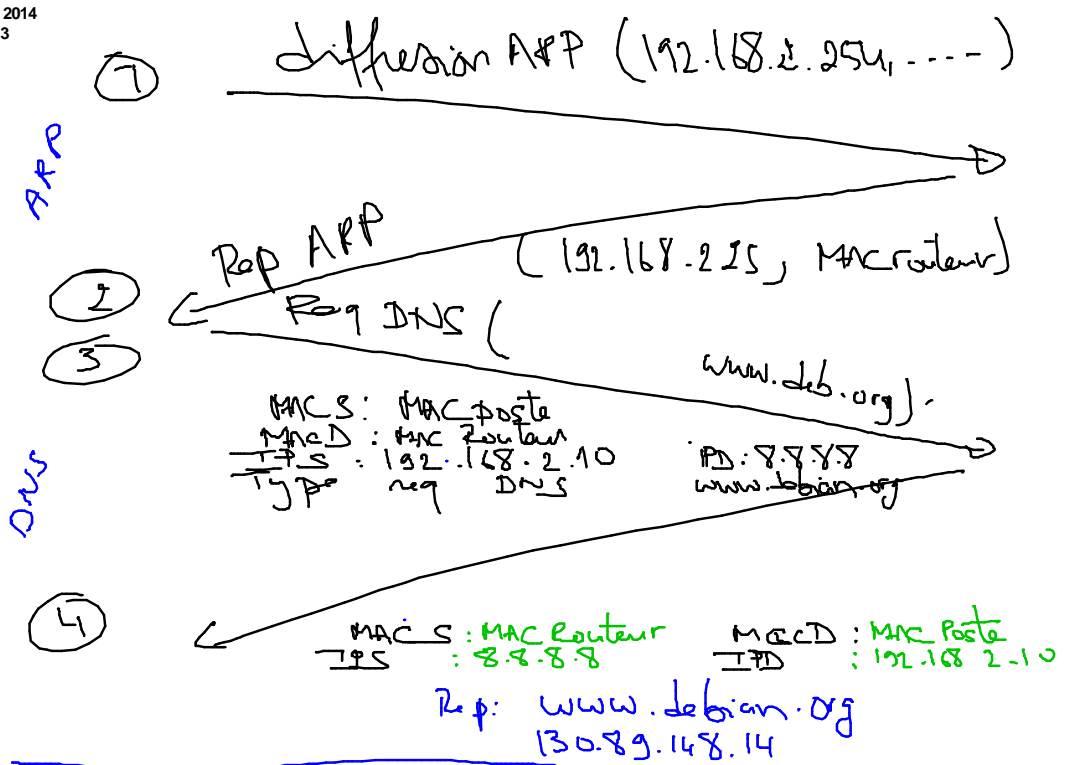 2014
3
1 diffusion ARP (192.168.2.254, ----)
ARP
Rep ARP (192.168.225, MAC routeur)
2
Req DNS (
3
www.deb.org).
MACS: MAC poste
MACD: MAC Routeur
IPS: 192.168.2.10 IPD: 8.8.8.8
Type req DNS www.debian.org
DNS
4
MAC S: MAC Routeur MACD: MAC Poste
IPS: 8.8.8.8 IPD: 192.168 2.10
Rep: www.debian.org
130.89.148.14